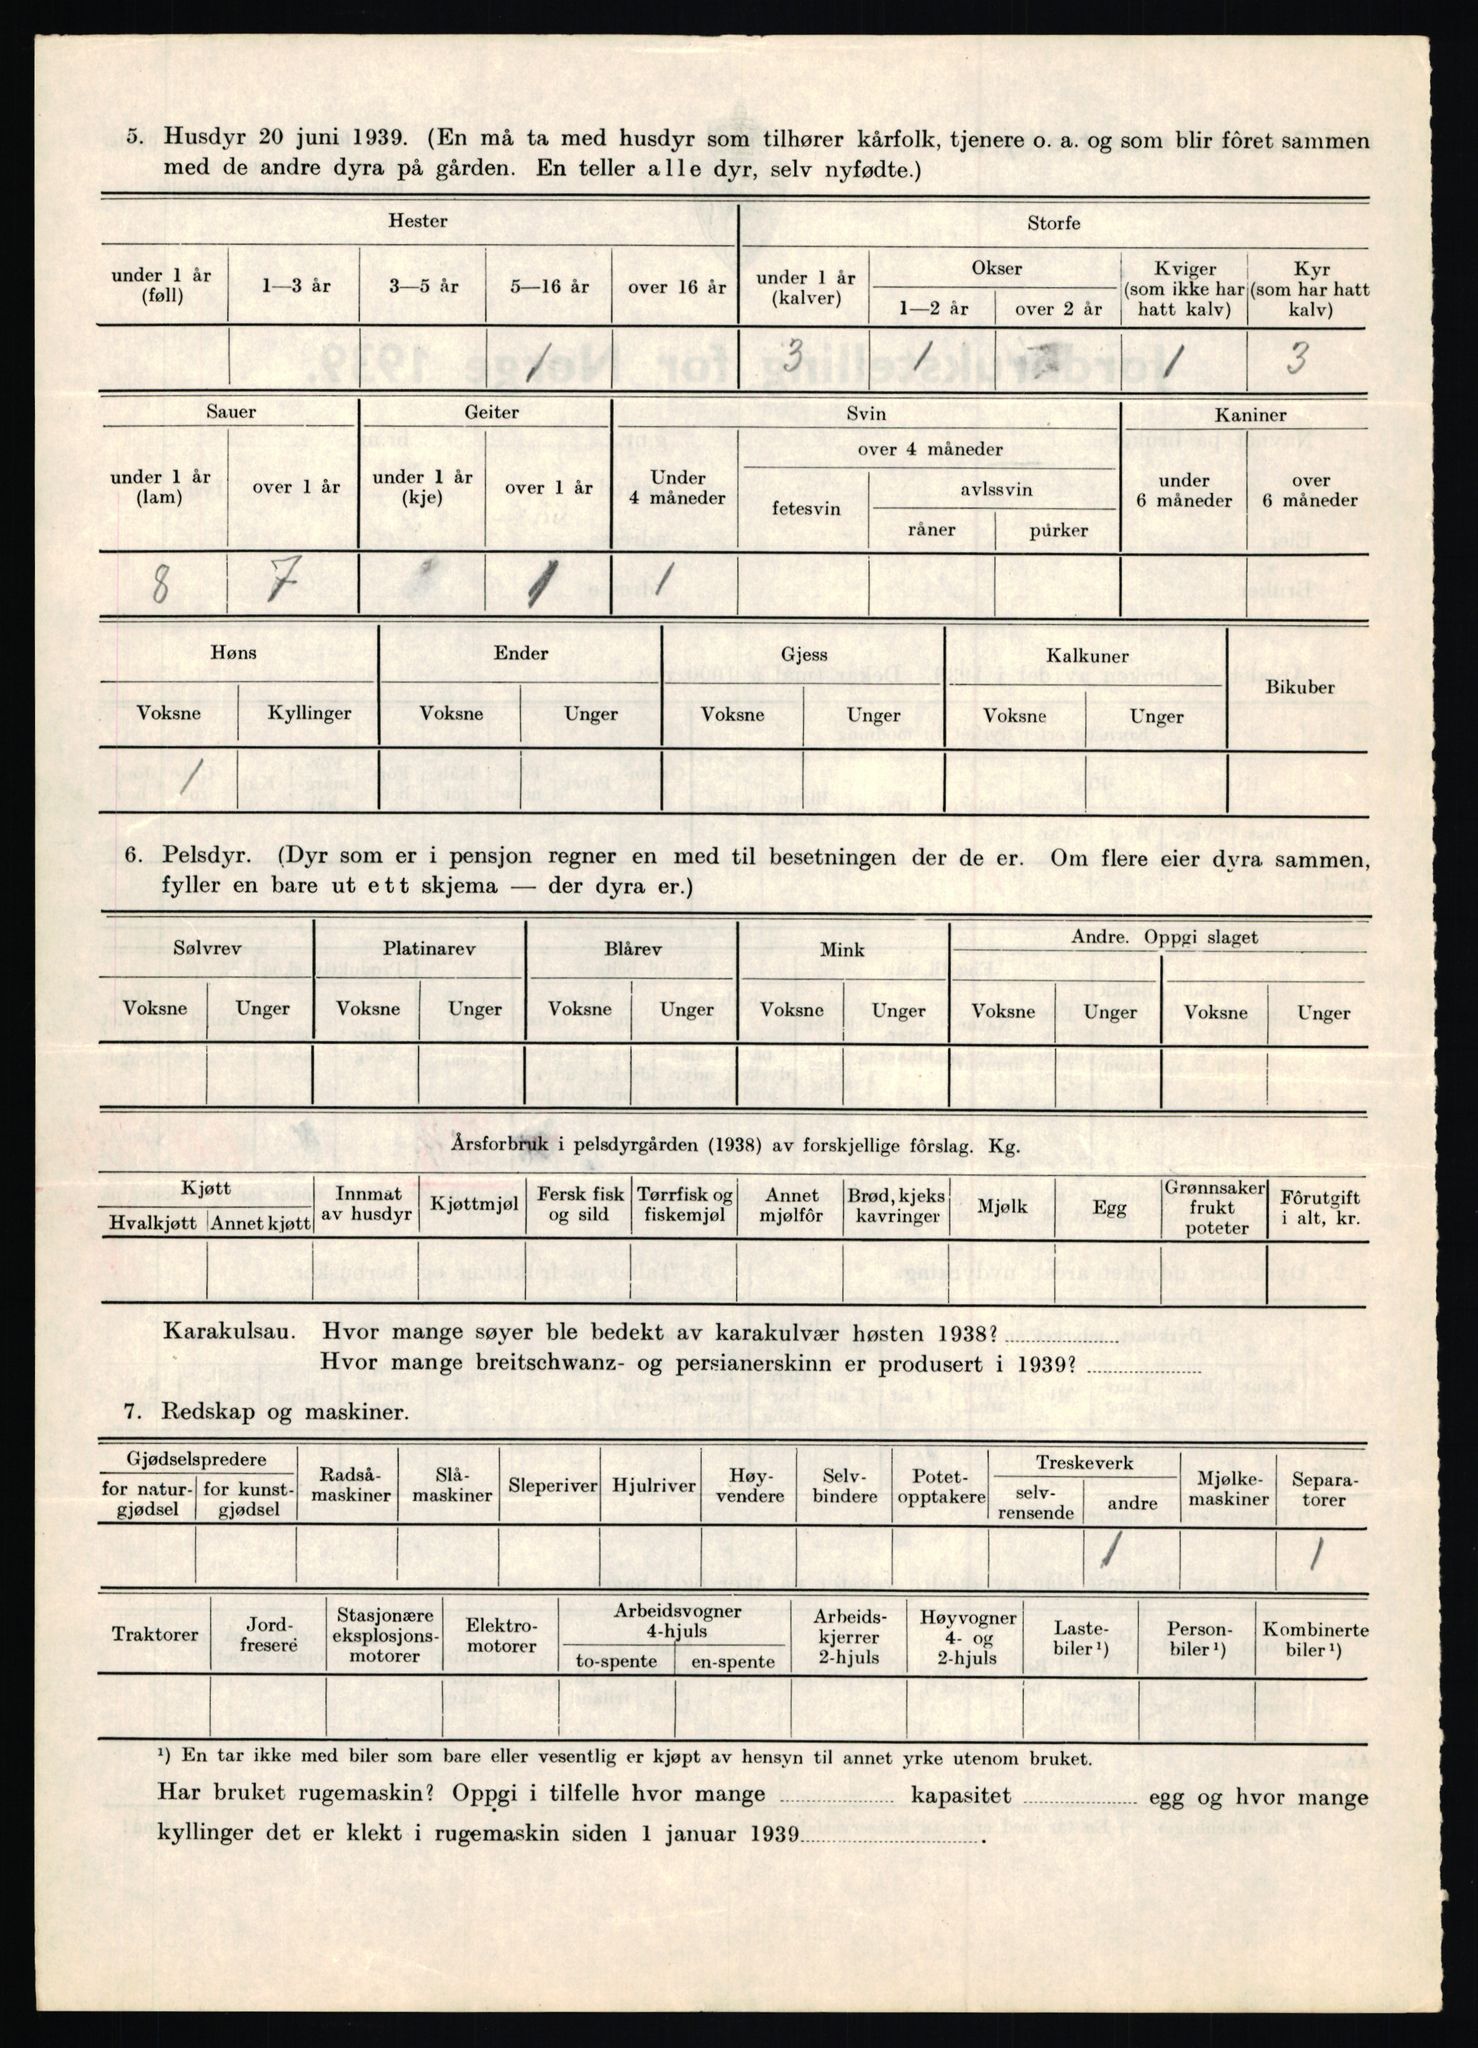 5. Husdyr 20 juni 1939. (En må ta med husdyr som tilhører kårfolk, tjenere o. a. og som blir fôret sammen
med de andre dyra på gården. En teller alle dyr, selv nyfødte.)
Hester Storfe
under 1 år (føll) 1—3 år 3—5 år 5—16 år over 16 år under 1 år (kalver) Okser 1—2 år over 2 år Kviger (som ikke har hatt kalv) Kyr (som har hatt kalv)
1 3 1 1 3
Sauer Geiter Svin Kaniner
under 1 år (lam) over 1 år under 1 år (kje) over 1 år Under 4 måneder over 4 måneder fetesvin avlssvin råner purker under 6 måneder over 6 måneder
8 7 1 1
Høns Ender Gjess Kalkuner Bikuber
Voksne Kyllinger Voksne Unger Voksne Unger Voksne Unger
1
6. Pelsdyr. (Dyr som er i pensjon regner en med til besetningen der de er. Om flere eier dyra sammen,
fyller en bare ut ett skjema — der dyra er.)
Sølvrev Platinarev Blårev Mink Andre. Oppgi slaget
Voksne Unger Voksne Unger Voksne Unger Voksne Unger Voksne Unger Voksne Unger
Årsforbruk i pelsdyrgården (1938) av forskjellige fôrslag. Kg.
Kjøtt Hvalkjøtt Annet kjøtt Innmat av husdyr Kjøttmjøl Fersk fisk og sild Tørrfisk og fiskemjøl Annet mjølfôr Brød, kjeks kavringer Mjølk Egg Grønnsaker frukt poteter Fôrutgift i alt, kr.
Karakulsau. Hvor mange søyer ble bedekt av karakulvær høsten 1938?
Hvor mange breitschwanz- og persianerskinn er produsert i 1939?
7. Redskap og maskiner.
Gjødselspredere for natur-gjødsel for kunst-gjødsel Radså-maskiner Slå-maskiner Sleperiver Hjulriver Høy-vendere Selv-bindere Potet-opptakere Treskeverk selv-rensende andre Mjølke-maskiner Separa-torer
1 1
Traktorer Jord-fresere Stasjonære eksplosjons-motorer Elektro-motorer Arbeidsvogner 4-hjuls to-spente en-spente Arbeids-kjerrer 2-hjuls Høyvogner 4- og 2-hjuls Laste-biler ¹) Person-biler ¹) Kombinerte biler ¹)
¹) En tar ikke med biler som bare eller vesentlig er kjøpt av hensyn til annet yrke utenom bruket.
Har bruket rugemaskin? Oppgi i tilfelle hvor mange kapasitet egg og hvor mange
kyllinger det er klekt i rugemaskin siden 1 januar 1939.